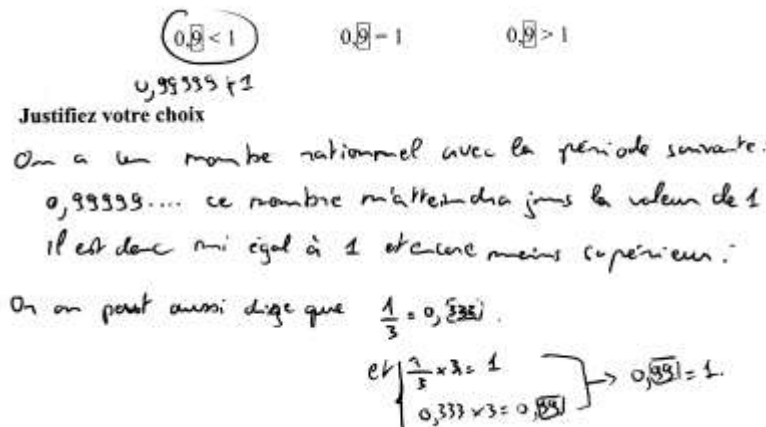 0,9 < 1 0,9 = 1 0,9 > 1
0,99999 ≠ 1
Justifiez votre choix
On a un nombre rationnel avec la période suivante.
0,99999.... ce nombre n'atteindra jms la valeur de 1
il est donc ni égal à 1 et encore moins supérieur.
On peut aussi dire que 1/3 = 0,333.
et 1/3 x 3 = 1
0,333 x 3 = 0,99
→ 0,99 = 1.